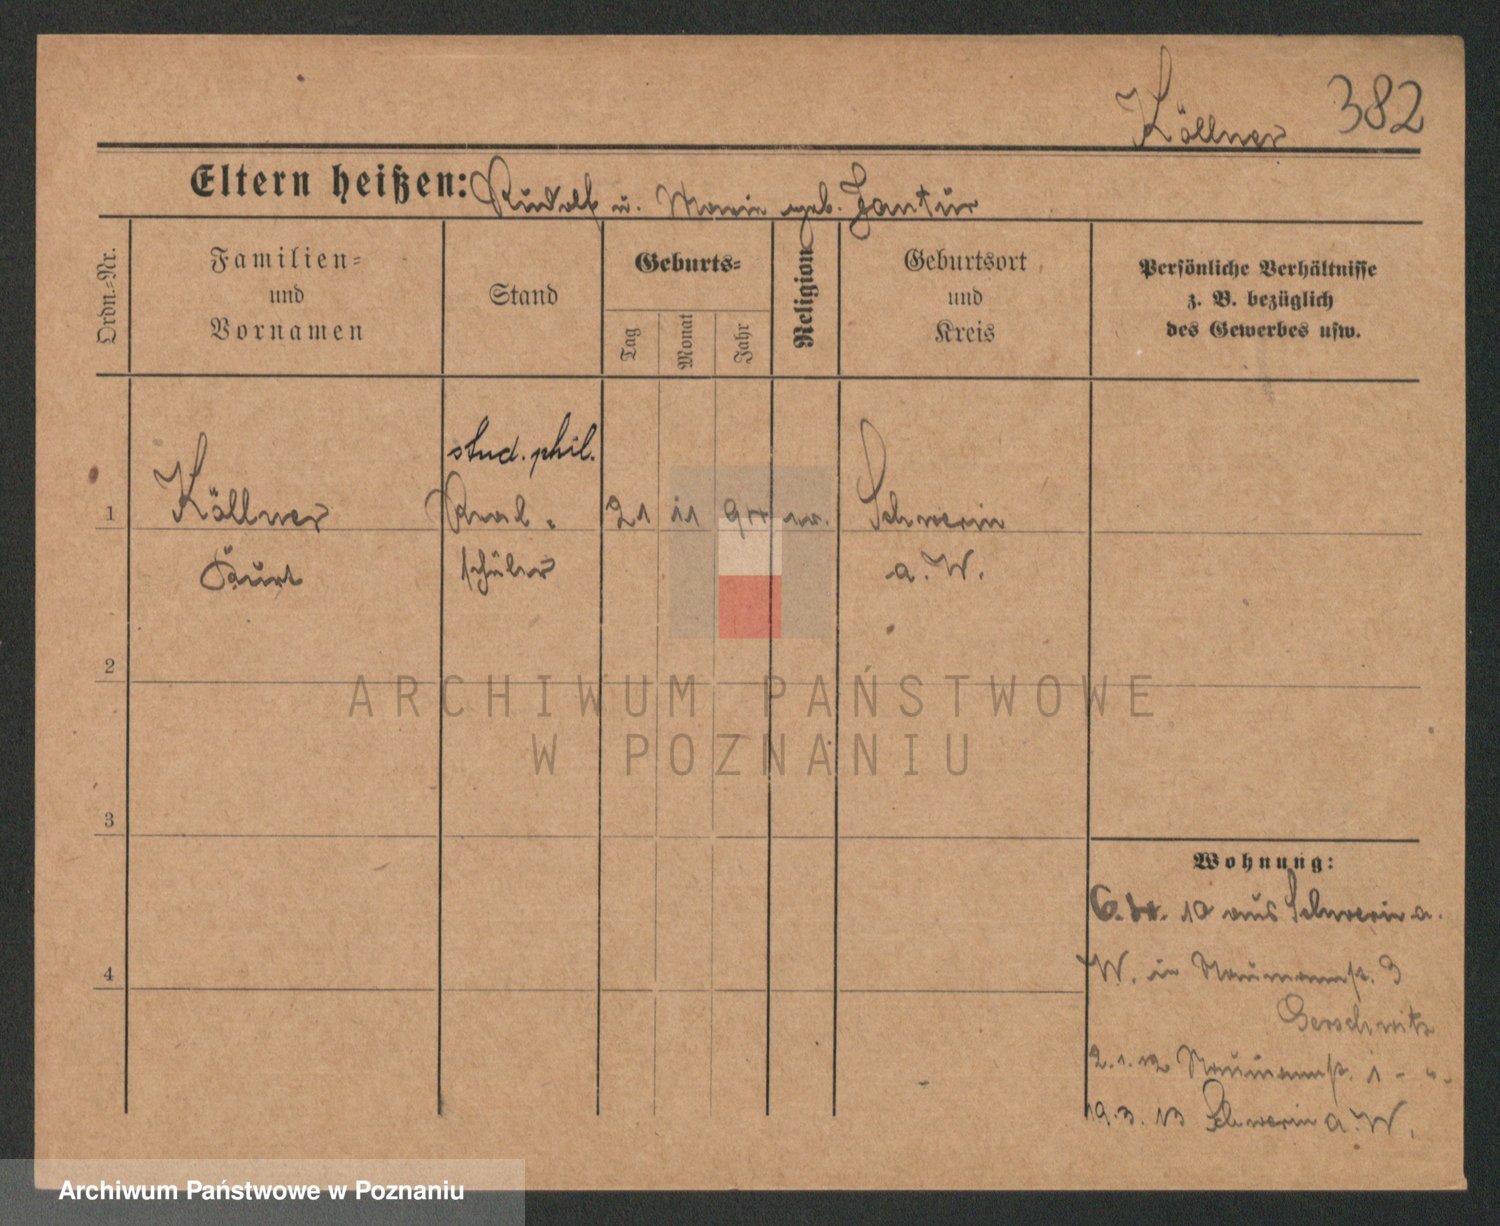 Köllner 382
Eltern heißen: Rudolf u. Marie geb. Jantur
Ordn.-Nr.
Familien-
und
Vornamen
Stand
Geburts-
Tag
Monat
Jahr
Religion
Geburtsort
und
Kreis
Persönliche Verhältnisse
z. B. bezüglich
des Gewerbes usw.
stud. phil.
1 Köllner Real- 21 11 94 ev. Schwerin
Kurt schüler a. W.
2
3
4
Wohnung:
6. 4. 10 aus Schwerin a.
W. in Naumannstr. 3
Gerschwitz
2. 1. 12 Naumannstr. 1 - " -
19. 3. 13 Schwerin a. W.
ARCHIWUM PAŃSTWOWE
W POZNANIU
Archiwum Państwowe w Poznaniu